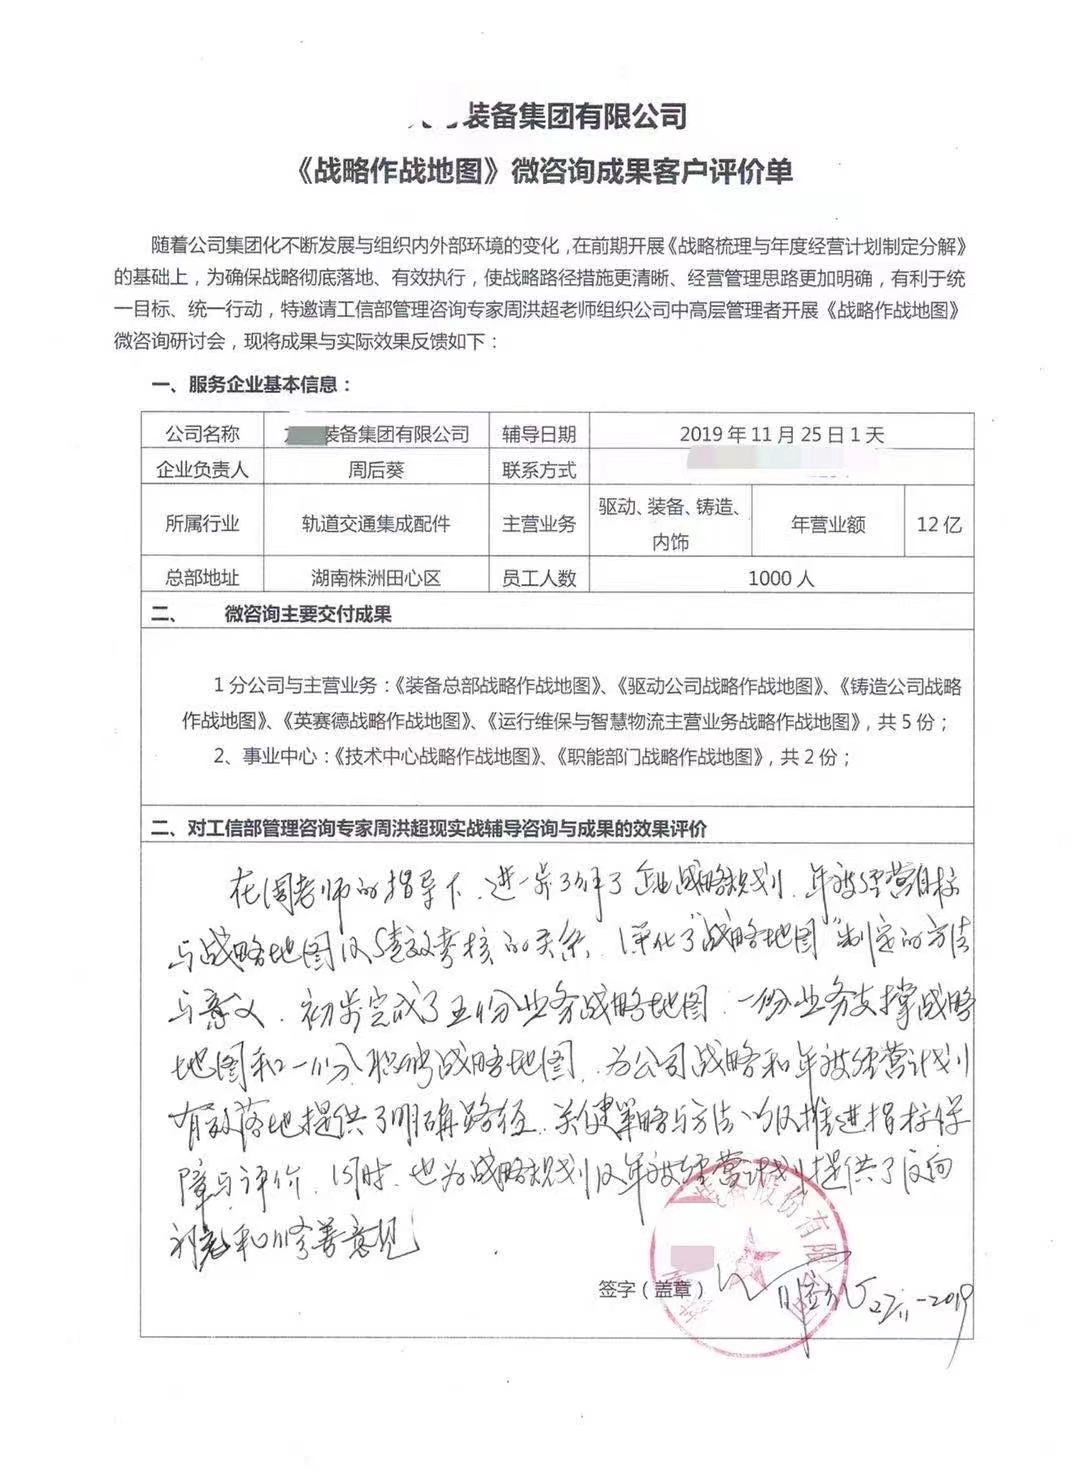 装备集团有限公司
《战略作战地图》微咨询成果客户评价单
随着公司集团化不断发展与组织内外部环境的变化，在前期开展《战略梳理与年度经营计划制定分解》
的基础上，为确保战略彻底落地、有效执行，使战略路径措施更清晰、经营管理思路更加明确，有利于统
一目标、统一行动，特邀请工信部管理咨询专家周洪超老师组织公司中高层管理者开展《战略作战地图》
微咨询研讨会，现将成果与实际效果反馈如下：
一、服务企业基本信息：
公司名称 装备集团有限公司 辅导日期 2019年11月25日1天
企业负责人 周后葵 联系方式
所属行业 轨道交通集成配件 主营业务 驱动、装备、铸造、
内饰 年营业额 12亿
总部地址 湖南株洲田心区 员工人数 1000人
二、 微咨询主要交付成果
1分公司与主营业务：《装备总部战略作战地图》、《驱动公司战略作战地图》、《铸造公司战略
作战地图》、《英赛德战略作战地图》、《运行维保与智慧物流主营业务战略作战地图》，共5份；
2、事业中心：《技术中心战略作战地图》、《职能部门战略作战地图》，共2份；
二、对工信部管理咨询专家周洪超现实战辅导咨询与成果的效果评价
在周老师的指导下，进一步了解了企业战略规划、年度经营目标
与战略地图及绩效考核的关系，深化了"战略地图"制定的方法
与意义，初步完成了五份业务战略地图，一份业务支撑战略
地图和一份职能战略地图，为公司战略和年度经营计划
有效落地提供了明确路径、关键策略与方法以及推进指标保
障与评价，同时，也为战略规划及年度经营计划提供了反向
和修善意见
装备股份有限
签字（盖章） 27/11-2019